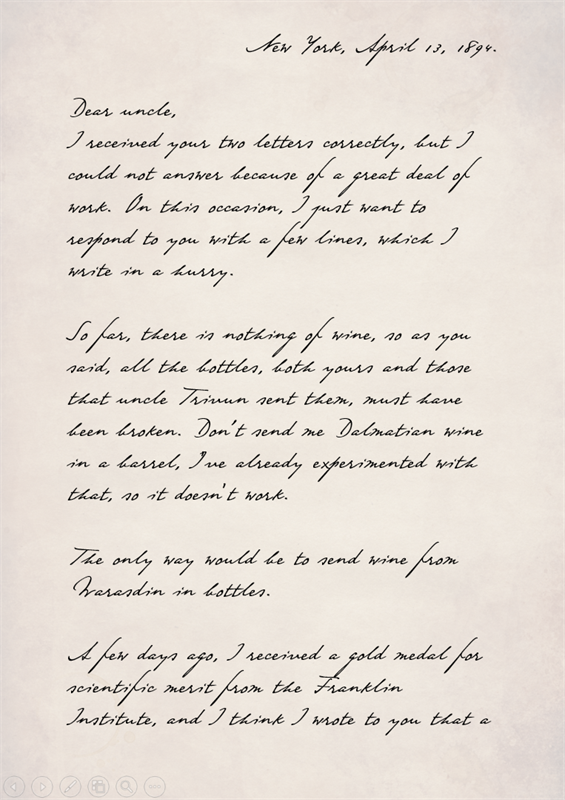 New York, April 13, 1894.
Dear uncle,
I received your two letters correctly, but I
could not answer because of a great deal of
work. On this occasion, I just want to
respond to you with a few lines, which I
write in a hurry.
So far, there is nothing of wine, so as you
said, all the bottles, both yours and those
that uncle Trivun sent them, must have
been broken. Don't send me Dalmatian wine
in a barrel, I've already experimented with
that, so it doesn't work.
The only way would be to send wine from
Warasdin in bottles.
A few days ago, I received a gold medal for
scientific merit from the Franklin
Institute, and I think I wrote to you that a